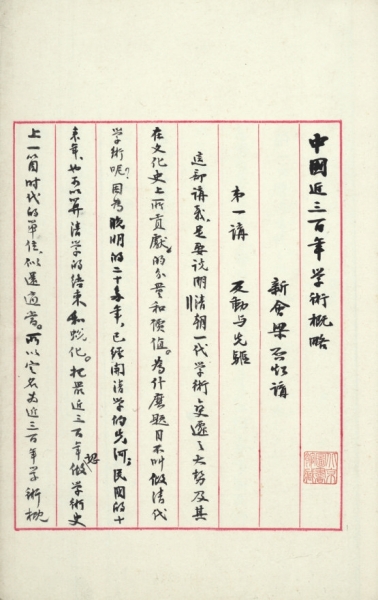 中國近三百年学術概略
新會梁启超講
第一講　反動与先驅
這部講義，是要说明清朝一代学術变遷之大勢及其
在文化史上所貢獻的分量和價值。為什麽題目不叫做清代
学術呢？因為晚明的二十多年，已經開清学的先河；民國的十
来年，也可以算清学的结束和蜕化。把最近三百年認做学術史
上一箇时代的單位，似還適當。所以定名為近三百年学術概